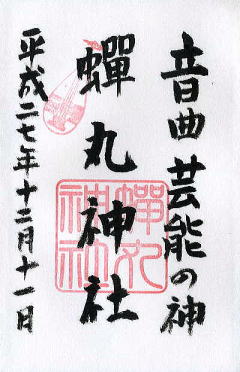 音曲芸能の神
蟬丸神社
平成二七年十二月十一日
蟬丸
神社